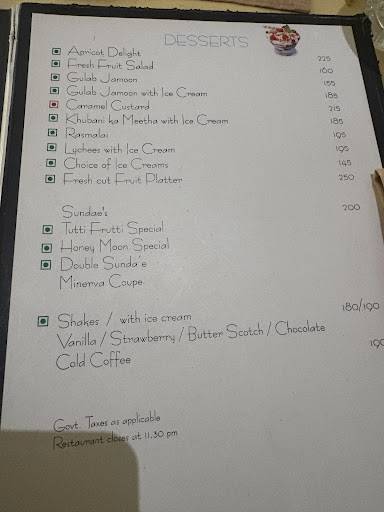 DESSERTS
Apricot Delight 225
Fresh Fruit Salad 160
Gulab Jamoon 155
Gulab Jamoon with Ice Cream 185
Caramel Custard 215
Khubani ka Meetha with Ice Cream 185
Rasmalai 195
Lychees with Ice Cream 195
Choice of Ice Creams 145
Fresh cut Fruit Platter 250
Sundae's 200
Tutti Frutti Special
Honey Moon Special
Double Sunda'e
Minerva Coupe
Shakes / with ice cream 180/190
Vanilla / Strawberry / Butter Scotch / Chocolate
Cold Coffee 190
Govt. Taxes as applicable
Restaurant closes at 11.30 pm